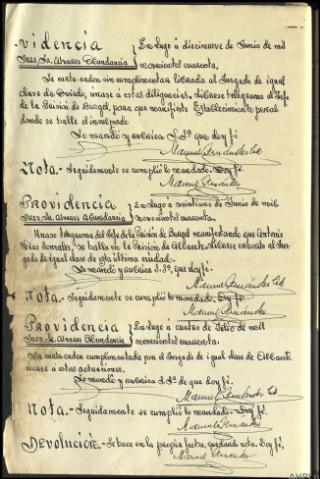 videncia
Sres. Sr. Alvarez Abundancia
En Lugo á diecinueve de Junio de mil
novecientos cuarenta.
La carta-orden sin cumplimentar librada al Juzgado de igual
clase de Oviedo, únase á estas diligencias, dibrese telegrama al Jefe
de la Prisión de Burgos, para que manifieste Establecimiento penal
donde se halle el inculpado
Lo mandó y rubrica S.Sª que doy fé
Manuel Fernández
Nota.- Seguidamente se cumplió lo mandado. Doy fé.
Manuel Fernández
Providencia
Sres. Sr. Alvarez Abundancia
En Lugo á veintiuno de Junio de mil
novecientos cuarenta.
Unase telegrama del Jefe de la Prisión de Burgos manifestando que Antonio
Díaz se halla en la Prisión de Albacete, librese exhorto al Juz-
gado de igual clase de ésta última ciudad.
Lo mandó y rubrica S.Sª, que doy fé.
Manuel Fernández
Nota.- Seguidamente se cumplió lo mandado, Doy fé,
Manuel Fernández
Providencia
Sres. Sr. Alvarez Abundancia
En Lugo á cuatro de Julio de mil
novecientos cuarenta.
La carta-orden cumplimentada por el Juzgado de igual clase de Albacete
únase á estas actuaciones.
Lo mandó y rubrica S.Sª de que doy fé.
Manuel Fernández
Nota.- Seguidamente se cumplió lo mandado. Doy fé.
Manuel Fernández
Devolución.- Se hace en la propia fecha, quedando nota. Doy fé,
Manuel Fernández